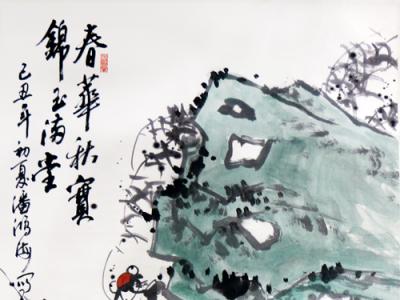 春華秋實
錦玉滿堂
己丑年初夏潘鴻海寫